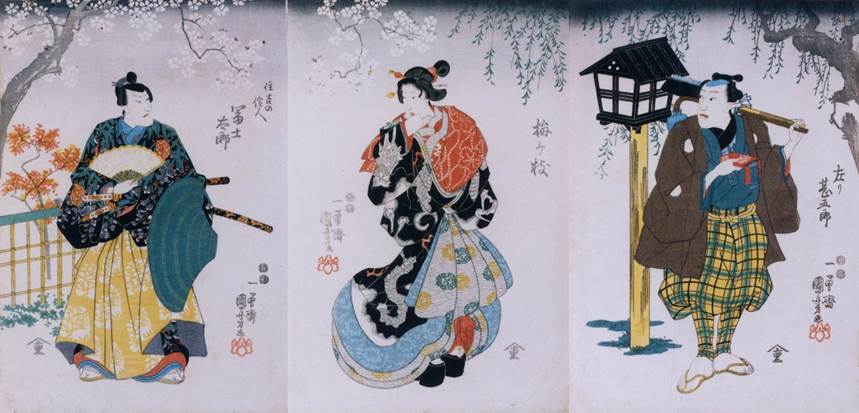 住吉の
俊人
冨士
太郎
一勇齋
國芳画
重
梅ヶ枝
一勇齋
國芳画
重
左り
甚五郎
一勇齋
國芳画
重